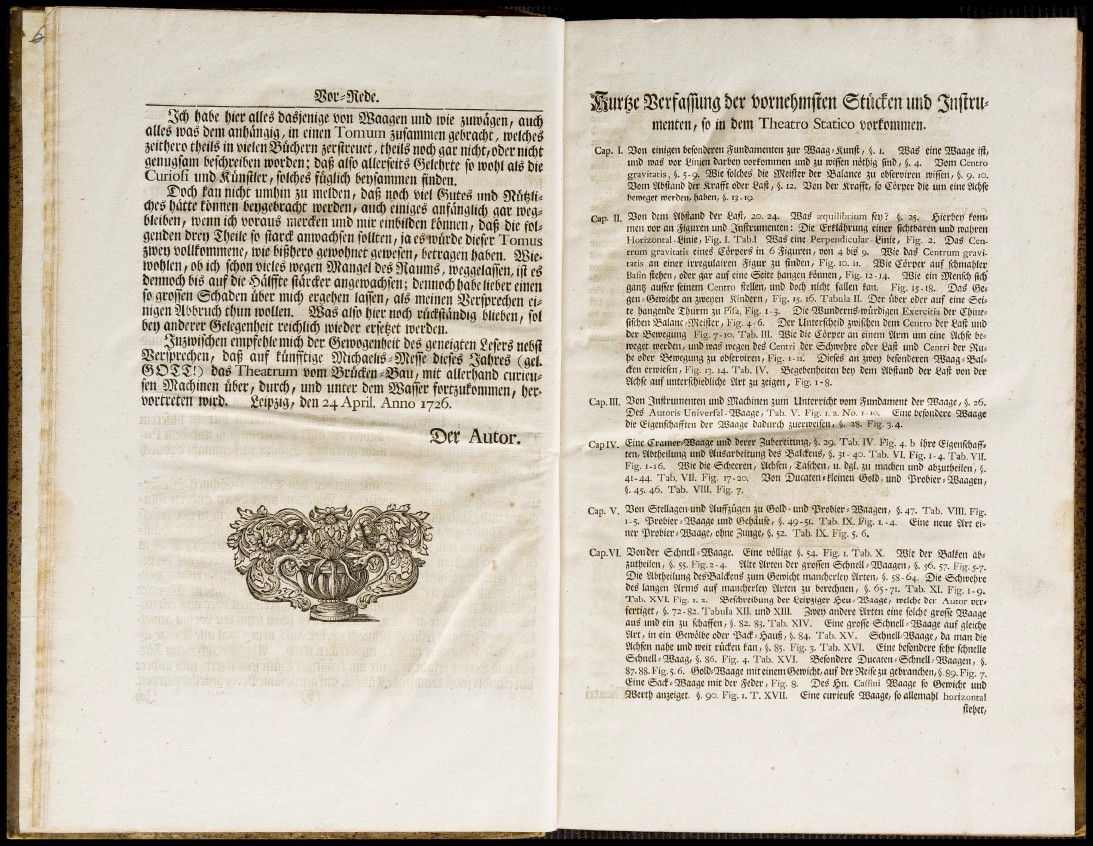 6
Vor-Rede.
Ich habe hier alles dasjenige von Waagen und wie zuwägen, auch
alles was dem anhängig, in einen Tomum zusammen gebracht, welches
zeithero theils in vielen Büchern zerstreuet, theils noch gar nicht, oder nicht
genugsam beschreiben worden; daß also allerseits Gelehrte so wohl als die
Curiosi und Künstler, solches füglich beysammen finden.
Doch kan nicht umhin zu melden, daß noch viel Gutes und Nützli-
ches hätte können beygebracht werden, auch einiges anfänglich gar weg-
bleiben, wenn ich voraus mercken und mir einbilden können, daß die fol-
genden drey Theile so starck anwachsen sollten, ja es würde dieser Tomus
zwey vollkommene, wie bißhero gewohnet gewesen, betragen haben. Wie-
wohlen, ob ich schon vieles wegen Mangel des Raums, weggelassen, ist es
dennoch bis auf die Hälffte stärcker angewachsen; dennoch habe lieber einen
so grossen Schaden über mich ergehen lassen, als meinen Versprechen ei-
nigen Abbruch thun wollen. Was also hier noch rückständig blieben, sol
bey anderer Gelegenheit reichlich wieder ersetzet werden.
Inzwischen empfehle mich der Gewogenheit des geneigten Lesers nebst
Versprechen, daß auf künfftige Michaelis-Messe dieses Jahres (gel.
GOTT!) das Theatrum vom Brücken-Bau, mit allerhand curieu-
sen Machinen über, durch, und unter dem Wasser fortzukommen, her-
vortreten wird. Leipzig, den 24 April. Anno 1726.
Der Autor.
Kurtze Verfassung der vornehmsten Stücken und Instru-
menten, so in dem Theatro Statico vorkommen.
Cap. I. Von einigen besonderen Fundamenten zur Waag-Kunst, §. 1. Was eine Waage ist,
und was vor Linien darbey vorkommen und zu wissen nöthig sind, §. 4. Vom Centro
gravitatis, §. 5-9. Wie solches die Meister der Balance zu observiren wissen, §. 9. 10.
Vom Abstand der Krafft oder Last, §. 12. Von der Krafft, so Cörper die um eine Achse
beweget werden, haben, §. 13-19.
Cap. II. Von dem Abstand der Last, 20. 24. Was æquilibrium sey? §. 25. Hierbey kom-
men vor an Figuren und Instrumenten: Die Erklährung einer sichtbaren und wahren
Horizontal-Linie, Fig. I. Tab. I Was eine Perpendicular-Linie, Fig. 2. Das Cen-
trum gravitatis eines Cörpers in 6 Figuren, von 4 bis 9. Wie das Centrum gravi-
tatis an einer irregulairen Figur zu finden, Fig. 10. 11. Wie Cörper auf schmahler
Basin stehen, oder gar auf eine Seite hangen können, Fig. 12-14. Wie ein Mensch sich
gantz ausser seinem Centro stellen, und doch nicht fallen kan. Fig. 15-18. Das Ge-
gen-Gewicht an zweyen Kindern, Fig. 15. 16. Tabula II. Der über oder auf eine Sei-
te hangende Thurm zu Pisa, Fig. 1-3. Die Wunderns-würdigen Exercitia der Chine-
sischen Balanc-Meister, Fig. 4-6. Der Unterscheid zwischen dem Centro der Last und
der Bewegung Fig. 7-10. Tab. III. Wie die Cörper an einem Arm um eine Achse be-
weget werden, und was wegen des Centri der Schwehre oder Last und Centri der Ru-
he oder Bewegung zu observiren, Fig. 1-11. Dieses an zwey besonderen Waag-Bal-
cken erwiesen, Fig. 13. 14. Tab. IV. Begegenheiten bey dem Abstand der Last von der
Achse auf unterschiedliche Art zu zeigen, Fig. 1-8.
Cap. III. Von Instrumenten und Machinen zum Unterricht vom Fundament der Waage, §. 26.
Des Autoris Universal-Waage, Tab. V. Fig. 1. 2. No. 1-10. Eine besondere Waage
die Eigenschafften der Waage dadurch zuerweisen, §. 28. Fig. 3. 4.
Cap IV. Eine Cramer-Waage und derer Zubereitung, §. 29. Tab. IV. Fig. 4. b ihre Eigenschaff-
ten, Abtheilung und Ausarbeitung des Balckens, §. 31-40. Tab. VI. Fig. 1-4. Tab. VII.
Fig. 1-16. Wie die Scheeren, Achsen, Taschen, u. dgl. zu machen und abzutheilen, §.
41-44. Tab. VII. Fig. 17-20. Von Ducaten-kleinen Gold, und Probier-Waagen,
§. 45. 46. Tab. VIII. Fig. 7.
Cap. V. Von Stellagen und Auffzügen zu Gold- und Probier-Waagen, §. 47. Tab. VIII. Fig.
1-5. Probier-Waage und Gehäuse, §. 49-51. Tab. IX. Fig. 1.-4. Eine neue Art ei-
ner Probier-Waage, ohne Zunge, §. 52. Tab. IX. Fig. 5. 6.
Cap. VI. Von der Schnell-Waage. Eine völlige §. 54. Fig. 1. Tab. X. Wie der Balken ab-
zutheilen, §. 55. Fig. 2-4. Alte Arten der grossen Schnell-Waagen, §. 56. 57. Fig. 5-7.
Die Abtheilung des Balckens zum Gewicht mancherley Arten, §. 58-64. Die Schwehre
des langen Arms auf mancherley Arten zu berechnen, §. 65-71. Tab. XI. Fig. 1-9.
Tab. XVI. Fig. 1. 2. Beschreibung der Leipziger Heu-Waage, welche der Autor ver-
fertiget, §. 72-82. Tabula XII. und XIII. Zwey andere Arten eine solche grosse Waage
aus und ein zu schaffen, §. 82. 83. Tab. XIV. Eine grosse Schnell-Waage auf gleiche
Art, in ein Gewölbe oder Pack-Hauß, §. 84. Tab. XV. Schnell-Waage, da man die
Achsen nahe und weit rücken kan, §. 85. Fig. 3. Tab. XVI. Eine besondere sehr schnelle
Schnell-Waag, §. 86. Fig. 4. Tab. XVI. Besondere Ducaten-Schnell-Waagen, §.
87. 88. Fig. 5. 6. Gold-Waage mit einem Gewicht, auf der Reise zu gebrauchen, §. 89. Fig. 7.
Eine Sack-Waage mit der Feder, Fig. 8. Des Hn. Cassini Waage so Gewicht und
Werth anzeiget. §. 90. Fig. 1. T. XVII. Eine curieuse Waage, so allemahl horizontal
stehet,